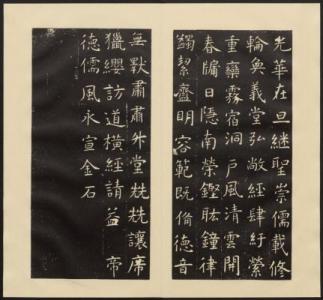 光華在旦繼聖崇儒載修
輪奐義堂弘敞經肆紆縈
重欒霧宿洞戶風清雲開
春牖日隱南榮鏗鈜鐘律
蠲絜齍明容範既備德音
無斁肅肅升堂兟兟讓席
獵纓訪道橫經請益帝
德儒風永宣金石